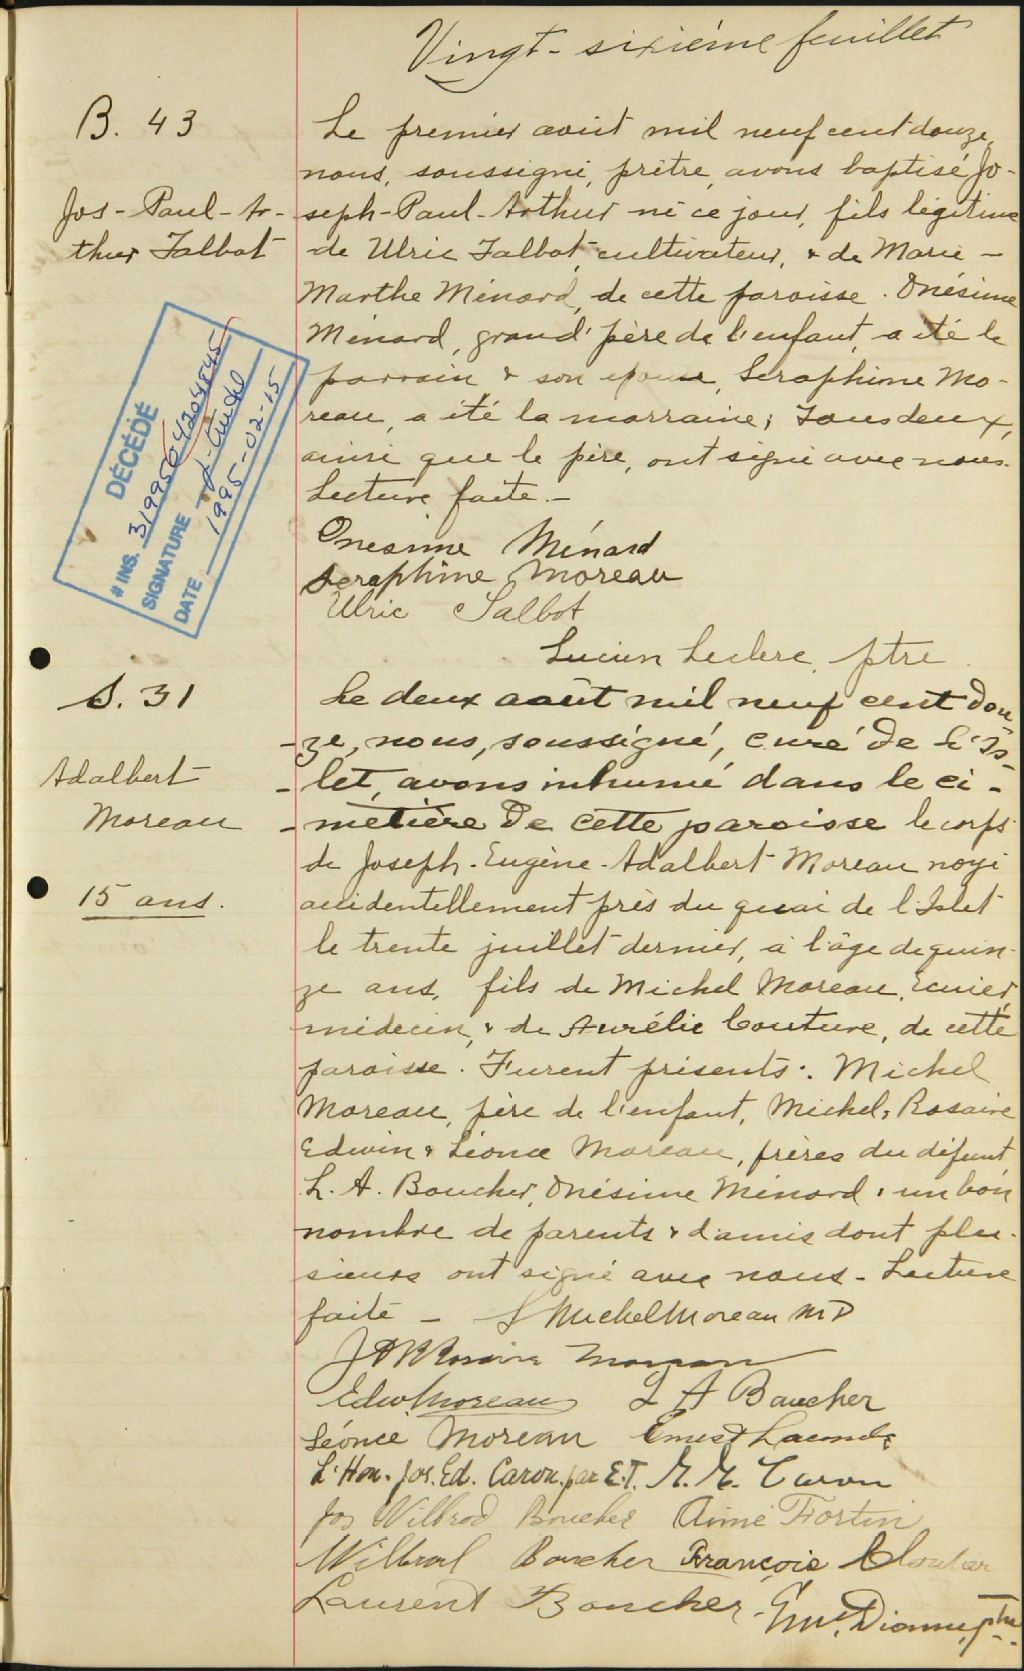 Vingt-sixième feuillet
B. 43
Jos-Paul-Ar-
thur Talbot
Le premier août mil neuf cent douze,
nous, soussigné, prêtre, avons baptisé Jo-
seph-Paul-Arthur né ce jour, fils légitime
de Ulric Talbot, cultivateur, & de Marie-
Marthe Ménard, de cette paroisse. Onésime
Ménard, grand'père de l'enfant, a été le
parrain & son épouse, Séraphine Mo-
reau, a été la marraine; Tous deux,
ainsi que le père, ont signé avec nous.
Lecture faite.-
DÉCÉDÉ
# INS. 3199564204845
SIGNATURE
DATE 1995-02-15
Onesime Ménard
Seraphine Moreau
Ulric Talbot
Lucien Leclerc, ptre
S. 31
Adalbert
Moreau
15 ans.
Le deux août mil neuf cent dou-
-ze, nous, soussigné, curé de L'Is-
-let, avons inhumé dans le ci-
-metière de cette paroisse le corps
de Joseph-Eugène-Adalbert Moreau noyé
accidentellement près du quai de l'Islet
le trente juillet dernier, à l'âge de quin-
ze ans, fils de Michel Moreau, Ecuier,
médecin, & de Aurélie Couture, de cette
paroisse. Furent présents: Michel
Moreau, père de l'enfant, Michel, Rosaire
Edwin & Léonce Moreau, frères du défunt
L. A. Boucher, Onésime Ménard & un bon
nombre de parents & d'amis dont plu-
sieurs ont signé avec nous - Lecture
faite - Michel Moreau MD
Rosaire Moreau
Edw Moreau L A Boucher
Léonce Moreau Ernest Lacombe
L'Hon. Jos. Ed. Caron par E.T. M. M. Caron
Jos Wilbrod Boucher Aimé Fortin
Wilbrod Boucher François Cloutier
Laurent Boucher Em. Dionne, ptre